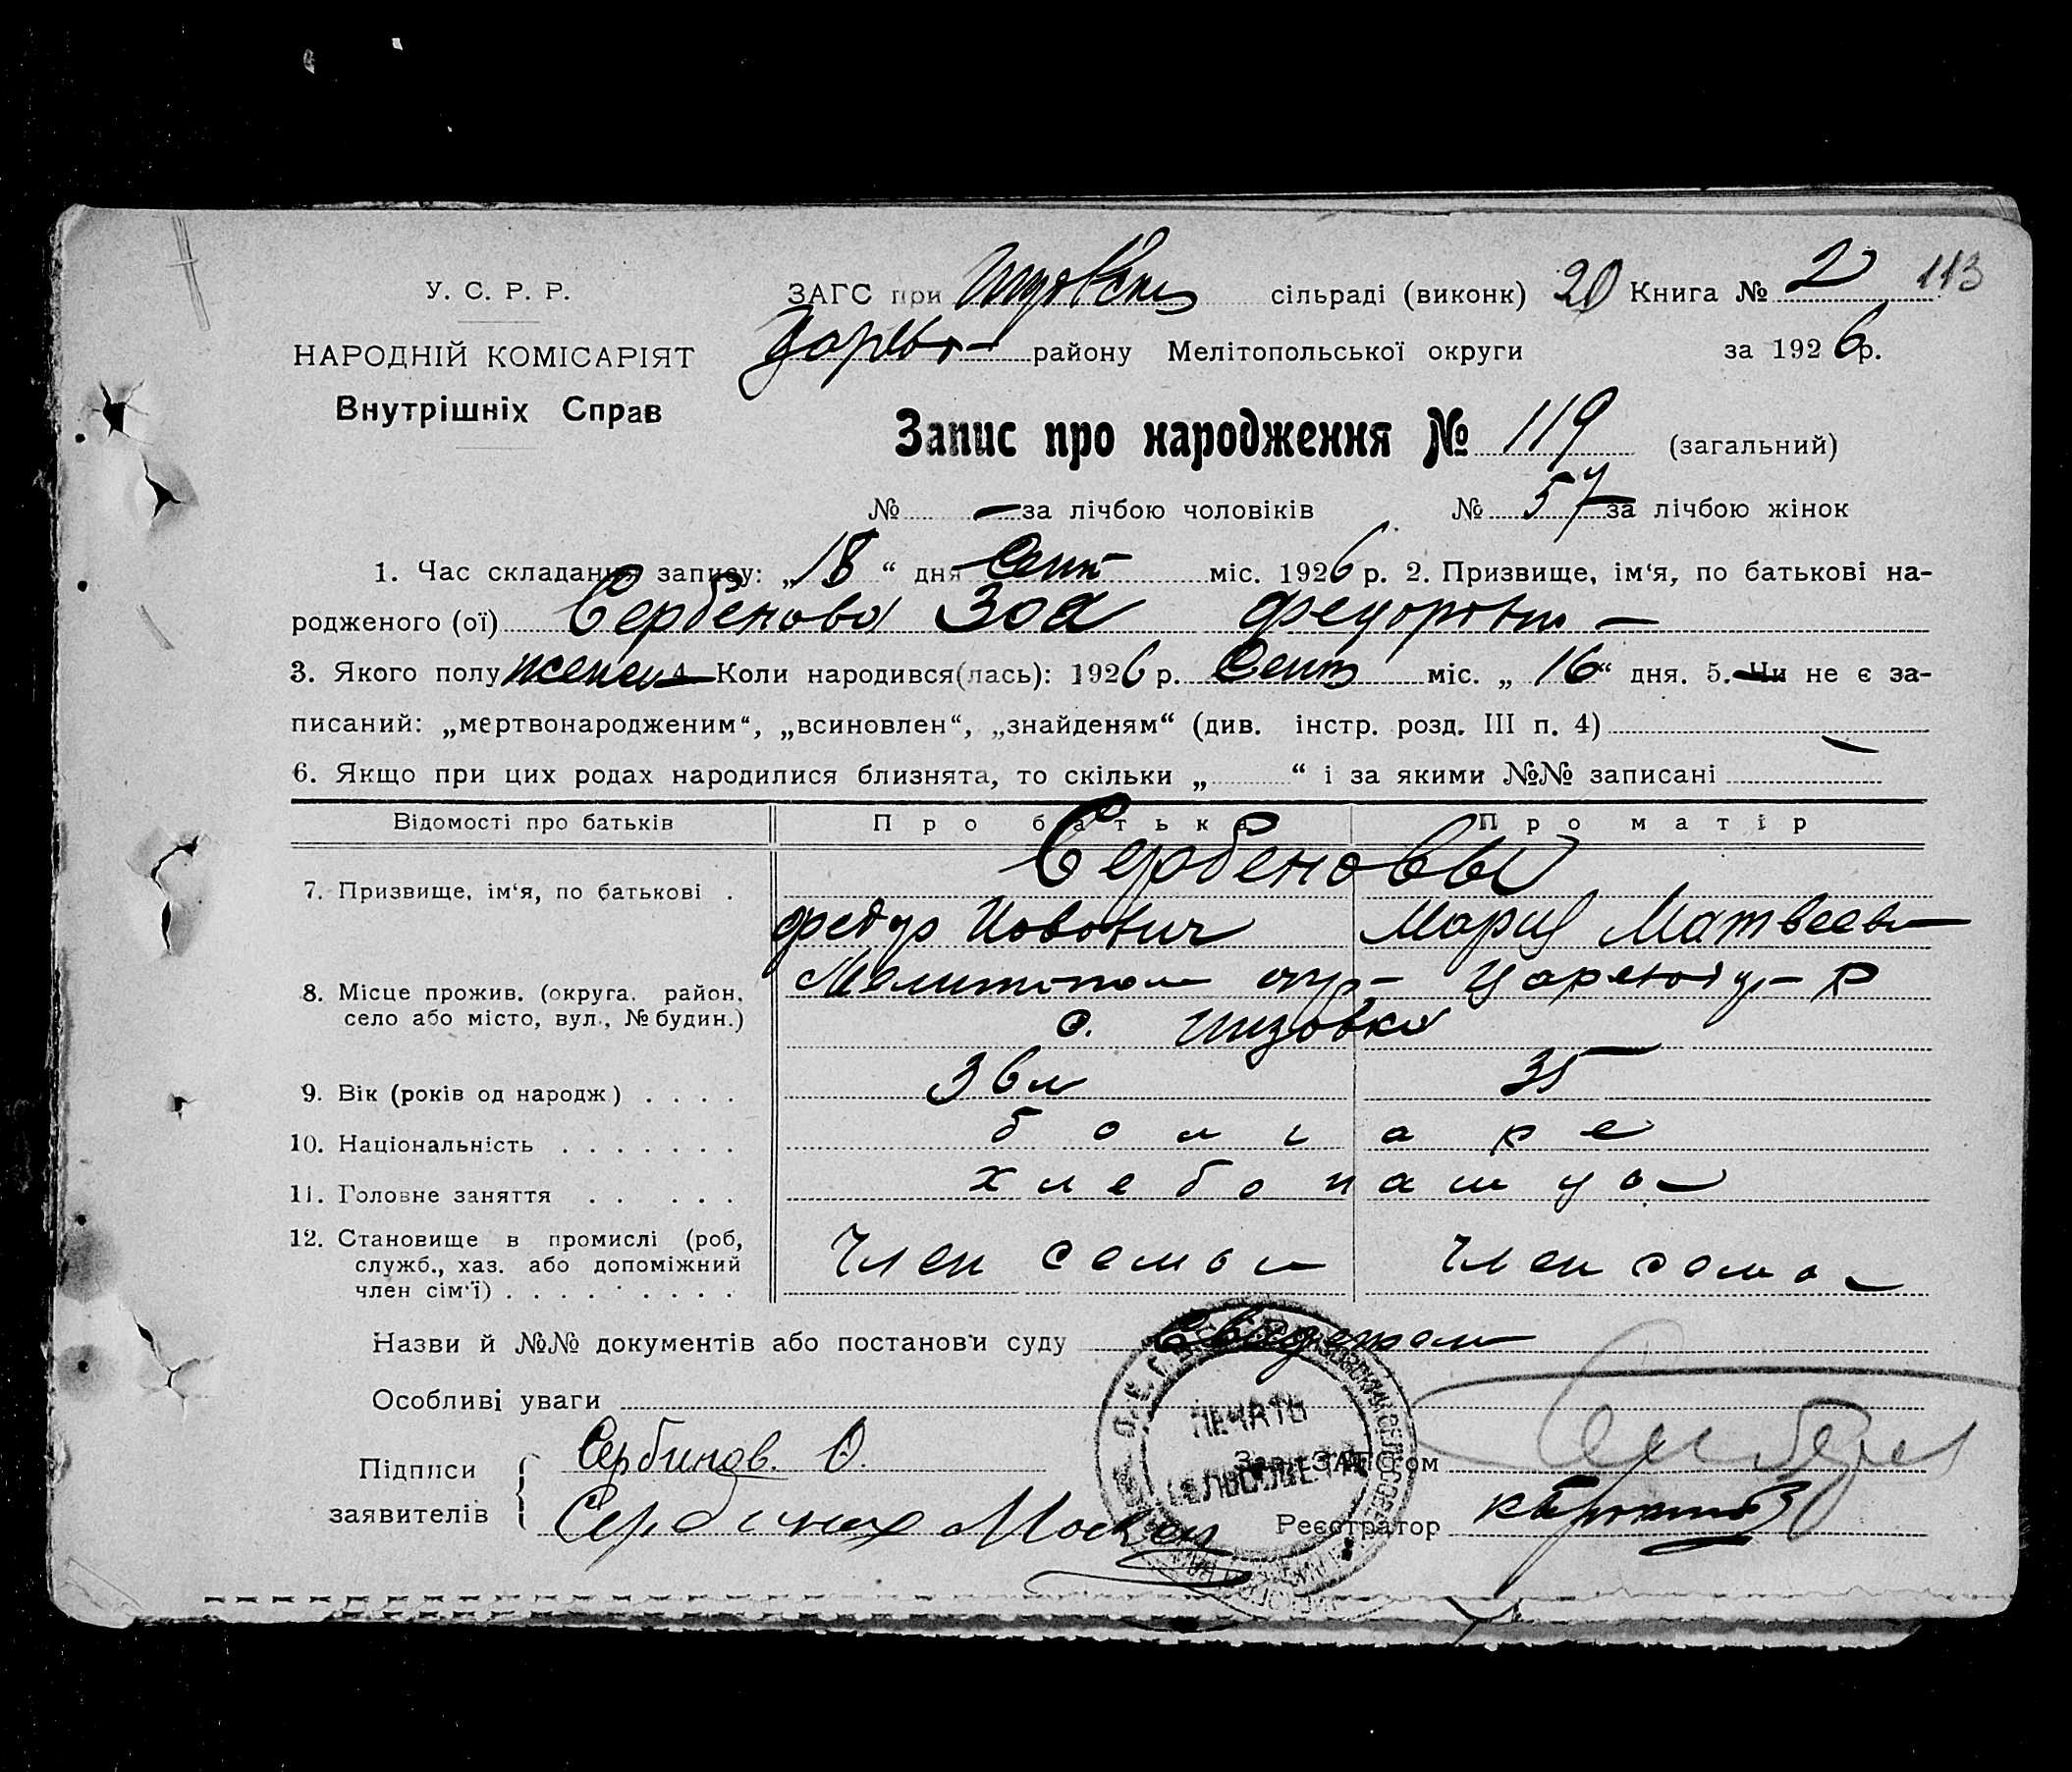 113
У. С. Р. Р.
НАРОДНІЙ КОМІСАРІЯТ
Внутрішніх Справ
ЗАГС при сільраді (виконк) 20 Книга № 2
району Мелітопольської округи за 1926 р.
Запис про народження № 119 (загальний)
№ — за лічбою чоловіків № 57 за лічбою жінок
1. Час складання запису: „18“ дня Сент міс. 1926 р. 2. Призвище, ім‘я, по батькові на-
родженого (ої) Сербенова Зоя Федоровн—
3. Якого полу женск 4. Коли народився(лась): 1926 р. Сент міс. „16“ дня. 5. Чи не є за-
писаний: „мертвонародженим“, „всиновлен“, „знайденям“ (див. інстр. розд. III п. 4)
6. Якщо при цих родах народилися близнята, то скільки „ “ і за якими №№ записані
Відомості про батьків Про батька Про матір
Сербеновы
7. Призвище, ім‘я, по батькові .
Федор Иовович Мария Матвеевн
8. Місце прожив. (округа, район, село або місто, вул., № будин.)
Мелитопол окр- Р
с. Инзовка
9. Вік (років од народж) . . . . 36 л 35
10. Національність . . . . . . . болгаре
11. Головне заняття . . . . . хлебопашцы
12. Становище в промислі (роб, служб., хаз. або допоміжний член сім‘ї) . . . . . . . . .
Член семьи Член семьи
Назви й №№ документів або постанови суду
Особливі уваги
ПЕЧАТЬ
СЕЛЬСОВЕТА
Підписи заявителів
Сербинов. Ѳ.
Зав. ЗАГС‘ом
Реєстратор